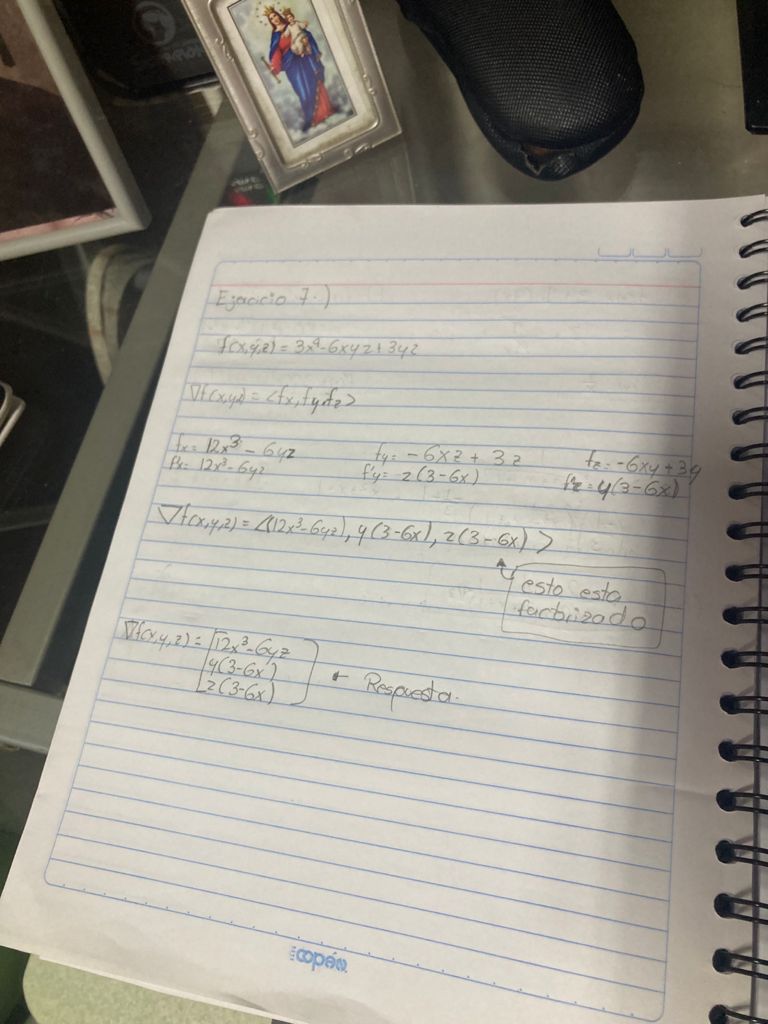 Ejercicio 7.)
f(x,y,z) = 3x⁴-6xyz+3yz
∇f(x,y,z) = <fx, fy, fz>
fx = 12x³ - 6yz    fy = -6xz + 3z    fz = -6xy + 3y
f'x = 12x³-6yz    f'y = z(3-6x)    f'z = y(3-6x)
∇f(x,y,z) = <(12x³-6yz), y(3-6x), z(3-6x)>
esto esta
factorizado
∇f(x,y,z) = [12x³-6yz
y(3-6x)
z(3-6x)] ← Respuesta.
copán